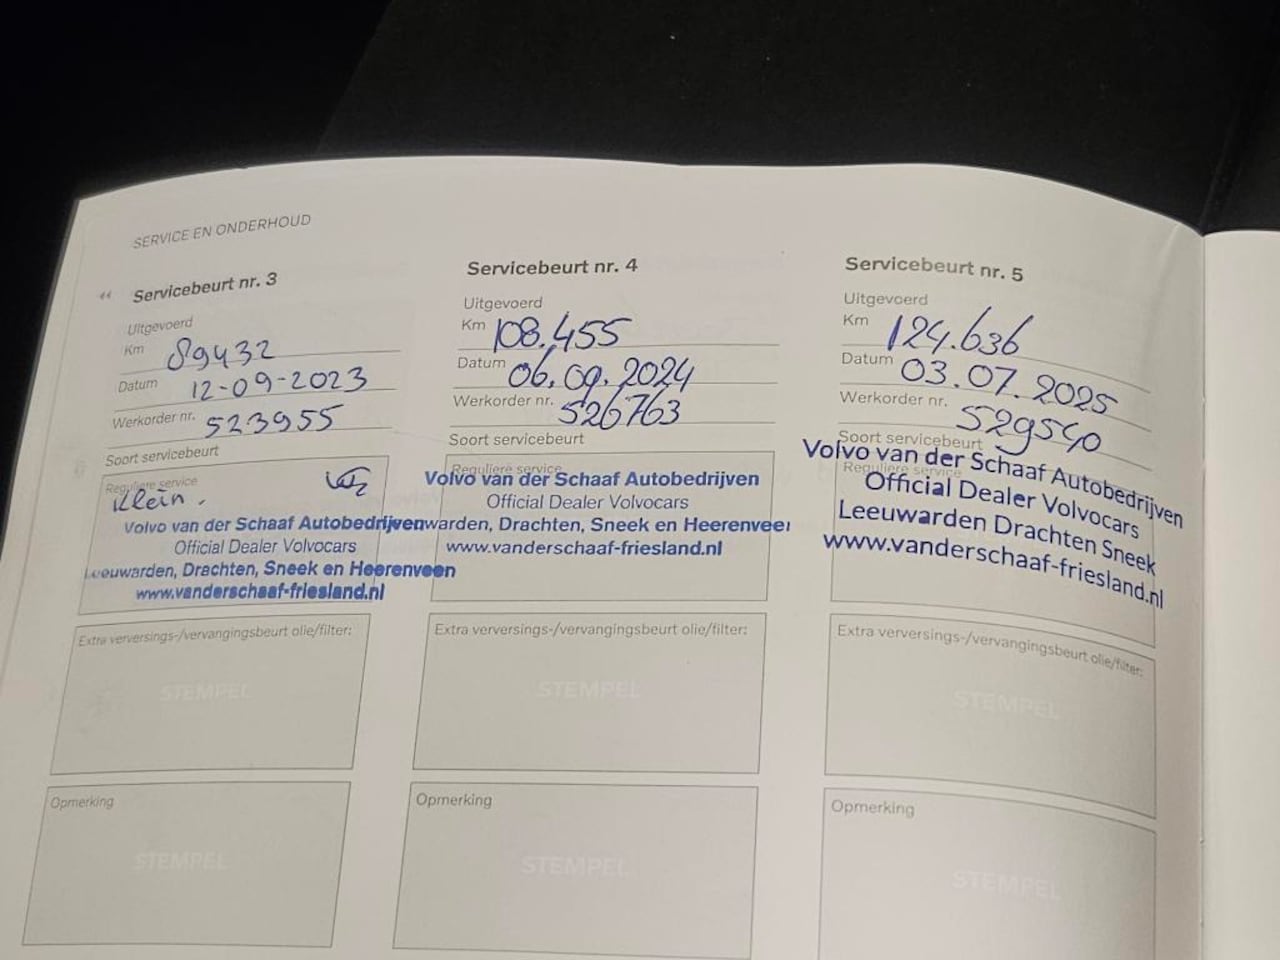 SERVICE EN ONDERHOUD
Servicebeurt nr. 3
Uitgevoerd
Km 89432
Datum 12-09-2023
Werkorder nr. 523955
Soort servicebeurt
Reguliere service
Klein.
Volvo van der Schaaf Autobedrijven
Official Dealer Volvocars
Leeuwarden, Drachten, Sneek en Heerenveen
www.vanderschaaf-friesland.nl
Extra verversings-/vervangingsbeurt olie/filter:
STEMPEL
Opmerking
STEMPEL
Servicebeurt nr. 4
Uitgevoerd
Km 108.455
Datum 06.09.2024
Werkorder nr. 526763
Soort servicebeurt
Reguliere service
Volvo van der Schaaf Autobedrijven
Official Dealer Volvocars
warden, Drachten, Sneek en Heerenveen
www.vanderschaaf-friesland.nl
Extra verversings-/vervangingsbeurt olie/filter:
STEMPEL
Opmerking
STEMPEL
Servicebeurt nr. 5
Uitgevoerd
Km 124.636
Datum 03.07.2025
Werkorder nr. 529540
Soort servicebeurt
Reguliere service
Volvo van der Schaaf Autobedrijven
Official Dealer Volvocars
Leeuwarden Drachten Sneek
www.vanderschaaf-friesland.nl
Extra verversings-/vervangingsbeurt olie/filter:
STEMPEL
Opmerking
STEMPEL